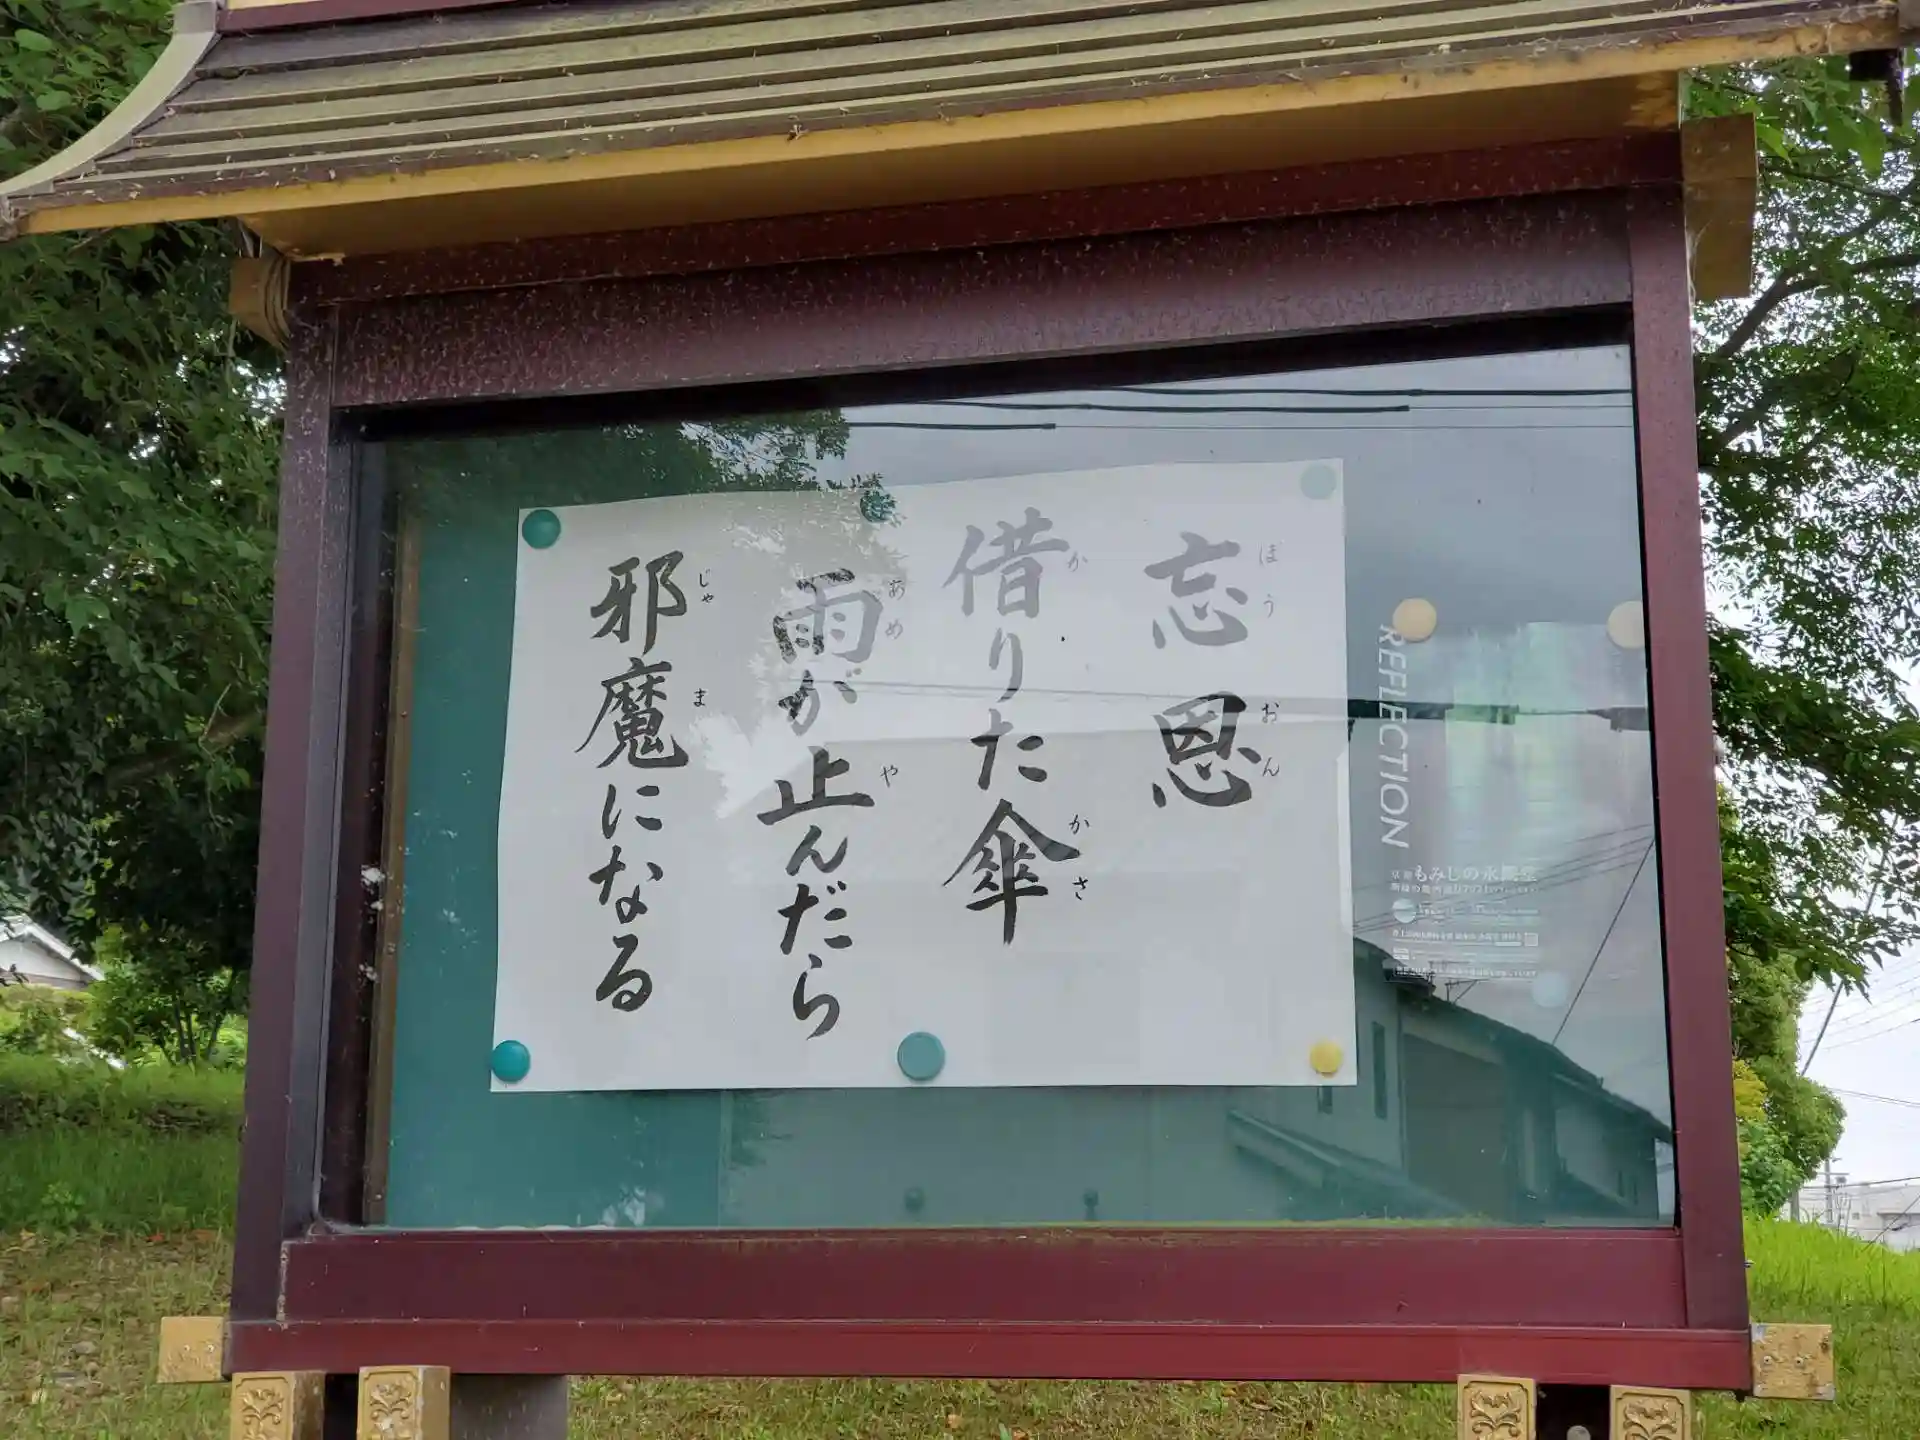 忘恩
ほうおん
借りた傘
か かさ
雨が止んだら
あめ や
邪魔になる
じゃ ま
REFLECTION
京都 もみじの永観堂